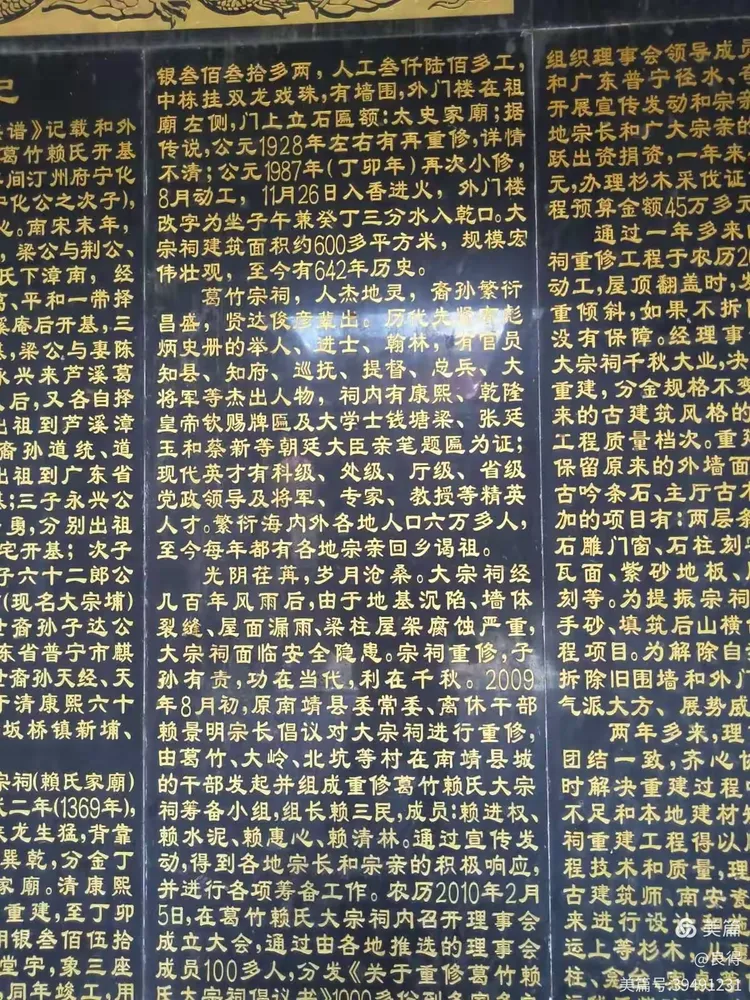 记
谱》记载和外
葛竹赖氏开基
年间汀州府宁化
宁化公之次子),
心。南宋末年,
,梁公与荆公、
氏下漳南, 经
葛、平和一带择
溪庵后开基,三
基,梁公与妻陈
永兴来芦溪葛
人后,又各自择
出祖到芦溪漳
裔孙道统、道
出祖到广东省
基;三子永兴公
勇,分别出祖
宅开基; 次子
子六十二郎公
(现名大宗埔)
世裔孙子达公
东省普宁市麒
世裔孙天经、天
于清康熙六十
坂桥镇新埔、
宗祠(赖氏家廟)
武二年(1369年),
来龙生猛,背靠
巽乾,分金丁
家廟。清康熙
重建,至丁卯
用银叁佰伍拾
堂字,象三座
同年竣工,用
银叁佰叁拾多两,人工叁仟陆佰多工,
中栋挂双龙戏珠,有墙围,外门楼在祖
廟左侧,门上立石匾额:太史家廟;据
传说,公元1928年左右有再重修,详情
不清;公元1987年(丁卯年)再次小修,
8月动工, 11月26日入香进火, 外门楼
改字为坐子午兼癸丁三分水入乾口。大
宗祠建筑面积约600多平方米, 规模宏
伟壮观, 至今有642年历史。
葛竹宗祠,人杰地灵,裔孙繁衍
昌盛,贤达俊彦辈出。历代先贤有彪
炳史册的举人、进士、翰林,有官员
知县、知府、巡抚、提督、总兵、大
将军等杰出人物, 祠内有康熙、乾隆
皇帝钦赐牌匾及大学士钱塘梁、张廷
玉和蔡新等朝廷大臣亲笔题匾为证;
现代英才有科级、处级、厅级、省级
党政领导及将军、专家、教授等精英
人才。繁衍海内外各地人口六万多人,
至今每年都有各地宗亲回乡谒祖。
光阴荏苒,岁月沧桑。大宗祠经
几百年风雨后,由于地基沉陷、墙体
裂缝、屋面漏雨、梁柱屋架腐蚀严重,
大宗祠面临安全隐患。宗祠重修,子
孙有责,功在当代,利在千秋。2009
年8月初,原南靖县委常委、离休干部
赖景明宗长倡议对大宗祠进行重修,
由葛竹、大岭、北坑等村在南靖县城
的干部发起并组成重修葛竹赖氏大宗
祠筹备小组,组长赖三民,成员:赖进权、
赖水泥、赖惠心、赖清林。通过宣传发
动,得到各地宗长和宗亲的积极响应,
并进行各项筹备工作。农历2010年2月
5日,在葛竹赖氏大宗祠内召开理事会
成立大会,通过由各地推选的理事会
成员100多人,分发《关于重修葛竹赖
氏大宗祠倡议书》1000多份到各宗亲
组织理事会领导成员
和广东普宁径水、
开展宣传发动和宗
地宗长和广大宗亲的
跃出资捐资,一年来
元,办理杉木采伐证
程预算金额45万多元
通过一年多来的
祠重修工程于农历20
动工,屋顶翻盖时,
重倾斜,如果不折
没有保障。经理事
大宗祠千秋大业,决
重建,分金规格不变
来的古建筑风格的
工程质量档次。重
保留原来的外墙面
古吟条石、主厅古
加的项目有:两层条
石雕门窗、石柱刻
瓦面、紫砂地板、
刻等。为提振宗祠
手砂、填筑后山横
程项目。为解除白
折除旧围墙和外门
气派大方、展势威
两年多来,理
团结一致,齐心协
时解决重建过程
不足和本地建材
祠重建工程得以
程技术和质量,理
古建筑师、南安
来进行设计
运上等杉木,从
柱、
美篇
@良得
美篇号:39491231